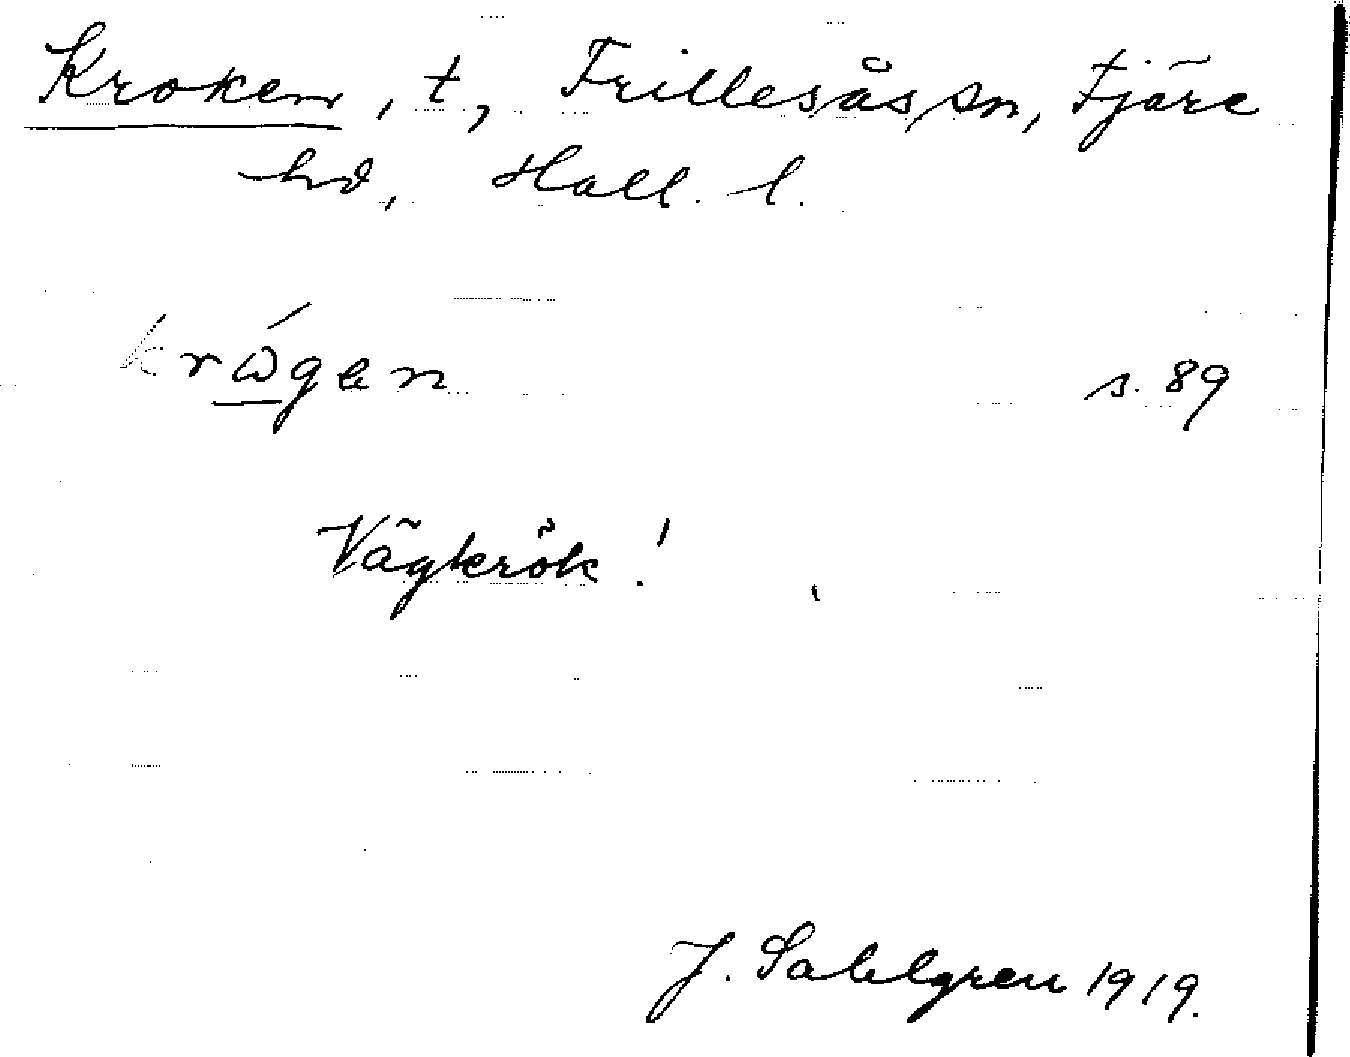 Kroken, t, Frillesås sn, Fjäre
hd, Hall. l.
krώgen s. 89
Vägkrök!
J. Sahlgren 1919.